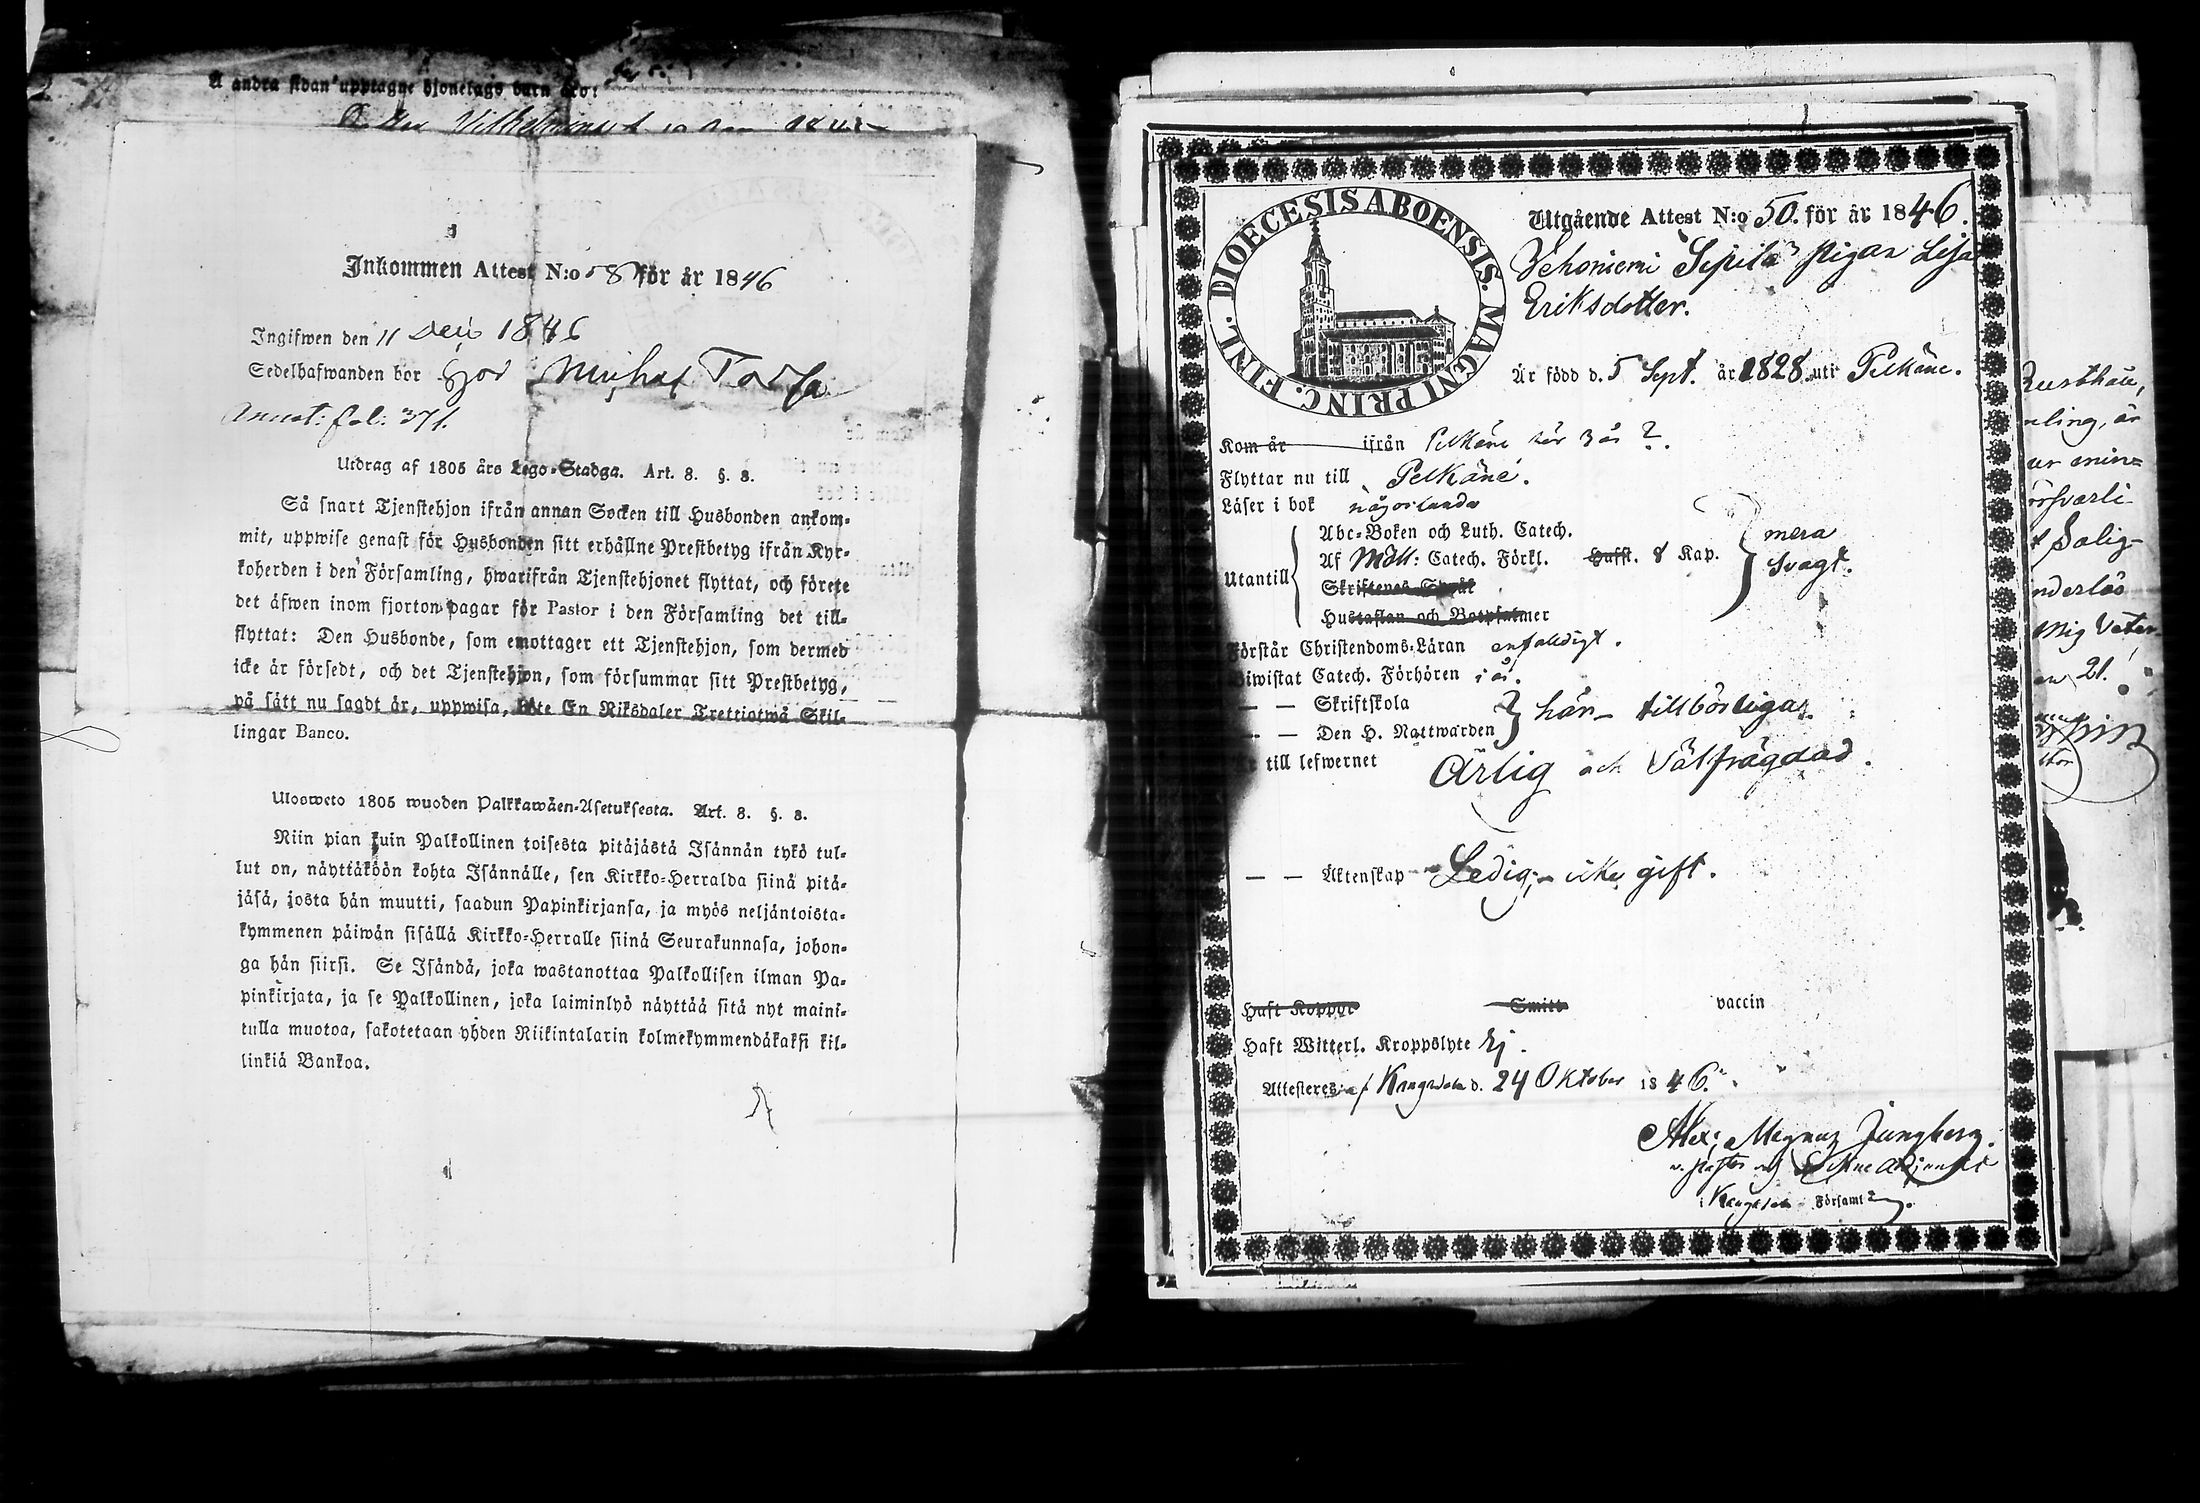 Å andra sidan upptagne hjonelags barn äro:
Vilhelmina
Inkommen Attest N:o 58 för år 1846
Ingifwen den 11 Dec 1846
Sedelhafwanden bor hos
Annot: fol: 371.
Utdrag af 1805 års Lego-Stadga. Art. 8. §. 8.
Så snart Tjenstehjon ifrån annan Socken till Husbonden ankom-
mit, uppwise genast för Husbonden sitt erhållne Prestbetyg ifrån Kyr-
koherden i den Församling, hwarifrån Tjenstehjonet flyttat, och förete
det äfwen inom fjorton dagar för Pastor i den Församling det till-
flyttat: Den Husbonde, som emottager ett Tjenstehjon, som dermed
icke är försedt, och det Tjenstehjon, som försummar sitt Prestbetyg,
på sätt nu sagdt är, uppwisa, böte En Riksdaler Trettiotwå Skil-
lingar Banco.
Ulosweto 1805 wuoden Palkkawäen-Asetuksesta. Art. 8. §. 8.
Niin pian kuin Palkollinen toisesta pitäjästä Isännän tykö tul-
lut on, näyttäköön kohta Isännälle, sen Kirkko-Herralda siinä pitä-
jäsä, josta hän muutti, saadun Papinkirjansa, ja myös neljäntoista-
kymmenen päiwän sisällä Kirkko-Herralle siinä Seurakunnasa, johon-
ga hän siirsi. Se Isändä, joka wastanottaa Palkollisen ilman Pa-
pinkirjata, ja se Palkollinen, joka laiminlyö näyttää sitä nyt maini-
tulla muotoa, sakotetaan yhden Riikintalarin kolmekymmendäkaksi kil-
linkiä Bankoa.
DIOECESIS ABOENSIS. MAGNI PRINC. FINL.
Utgående Attest N:o 50. för år 1846.
Vehoniemi Sepilä pigan Lisa
Eriksdotter.
Är född d. 5 Sept. år 1828 uti Pelkäne.
Kom år ifrån Pelkäne här 3 år ?.
Flyttar nu till Pelkäne.
Läser i bok någorlunda
Abc-Boken och Luth. Catech.
Utantill Af Möll: Catech. Förkl. Hufst. 8 Kap. mera svagt.
Skriftenes Språk
Hustaflan och Botpsalmer
Förstår Christendoms-Läran enfaldigt.
Biwistat Catech. Förhören i år.
— — Skriftskola
— — Den H. Nattwarden här tillbörligar.
Är till lefwernet Ärlig och Välfrägdad.
— — Äktenskap Ledig, icke gift.
Haft Koppor Smitt vaccin
Haft Witterl. Kroppslyte Ej.
Attesteres af Kangasala d. 24 Oktober 1846.
Alex: Magnus Ljungberg.
v. pastor
i Kangasala Församl
Rusthåll,
mling, är
ur min=
örsvarli-
t Salig-
nderlös
mig Veter-
21.